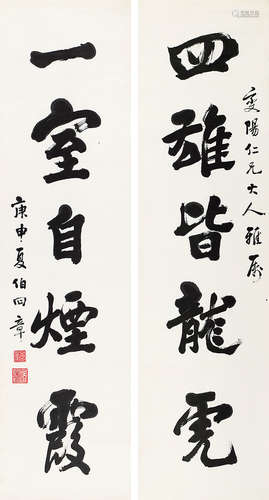 陽仁兄大人雅屬
四雄皆龍虎
一室自煙霞
庚申夏伯向章